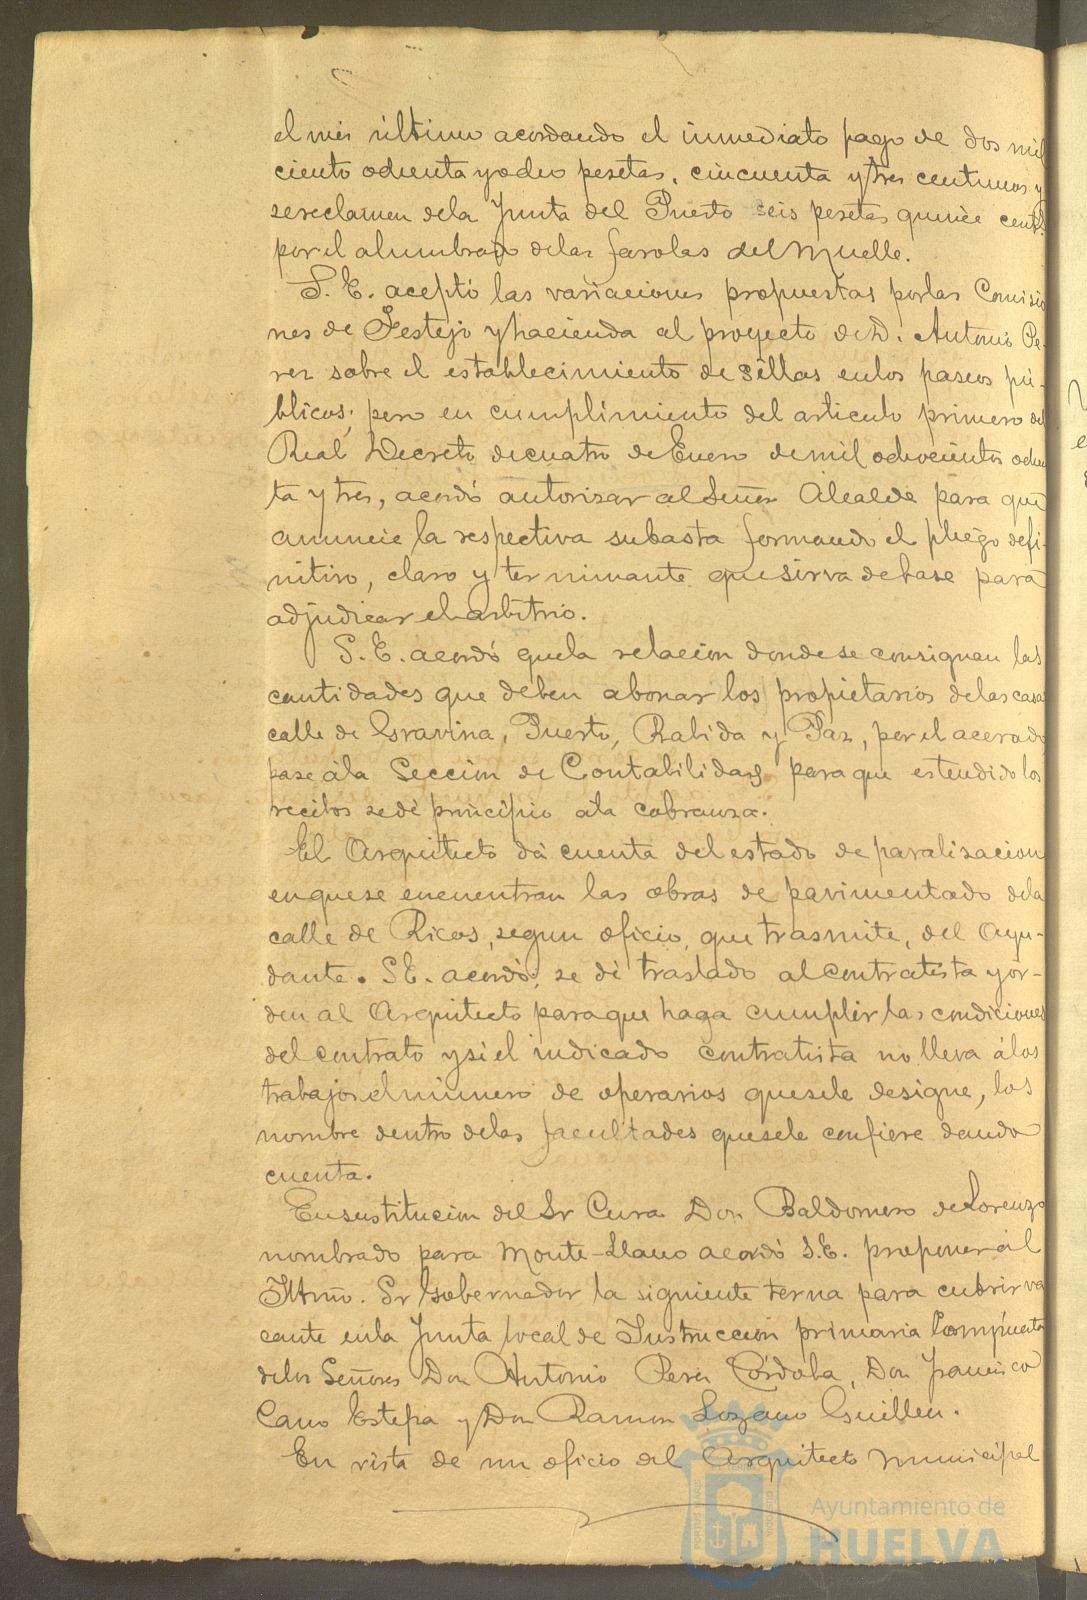 el mes último acordando el inmediato pago de dos mil
ciento ochenta y ocho pesetas, cincuenta y tres centimos y
se reclamen de la Junta del Puerto seis pesetas quince cent.
por el alumbrado de las farolas del Muelle.
S. E. aceptó las variaciones propuestas por las Comisio
nes de Festejo y hacienda al proyecto de D. Antonio Pe-
rez sobre el establecimiento de sillas en los paseos pú-
blicos; pero en cumplimiento del articulo primero del
Real Decreto de cuatro de Enero de mil ochocientos ochen
ta y tres, acordó autorizar al Señor Alcalde para que
anuncie la respectiva subasta formando el pliego defi-
nitivo, claro y terminante que sirva de base para
adjudicar el arbitrio.
S. E. acordó que la relacion donde se consignan las
cantidades que deben abonar los propietarios de las casas
calle de Gravina, Puerto, Rabida y Paz, por el acerado
pase á la Seccion de Contabilidad para que estendido los
recibos se dé principio a la cobranza.
El Arquitecto dá cuenta del estado de paralizacion
en que se encuentran las obras de pavimentado de la
calle de Ricos, segun oficio, que trasmite, del Ayu-
dante. S E. acordó, se dé traslado al contratista y or-
den al Arquitecto para que haga cumplir las condiciones
del contrato y si el indicado contratista no lleva á los
trabajos el número de operarios que se le designe, los
nombre dentro de las facultades que se le confiere dando
cuenta.
En sustitucion del Sr Cura Don Baldomero de Lorenzo
nombrado para Monte-Llano acordó S.E. proponer al
Iltmo. Sr Gobernador la siguiente terna para cubrir va
cante en la Junta local de Instruccion primaria Compuesta
de los Señores Don Antonio Perez Córdoba, Don Francisco
Cano Estepa y Don Ramon Lozano Guillen.
En vista de un oficio del Arquitecto Municipal
Ayuntamiento de
HUELVA